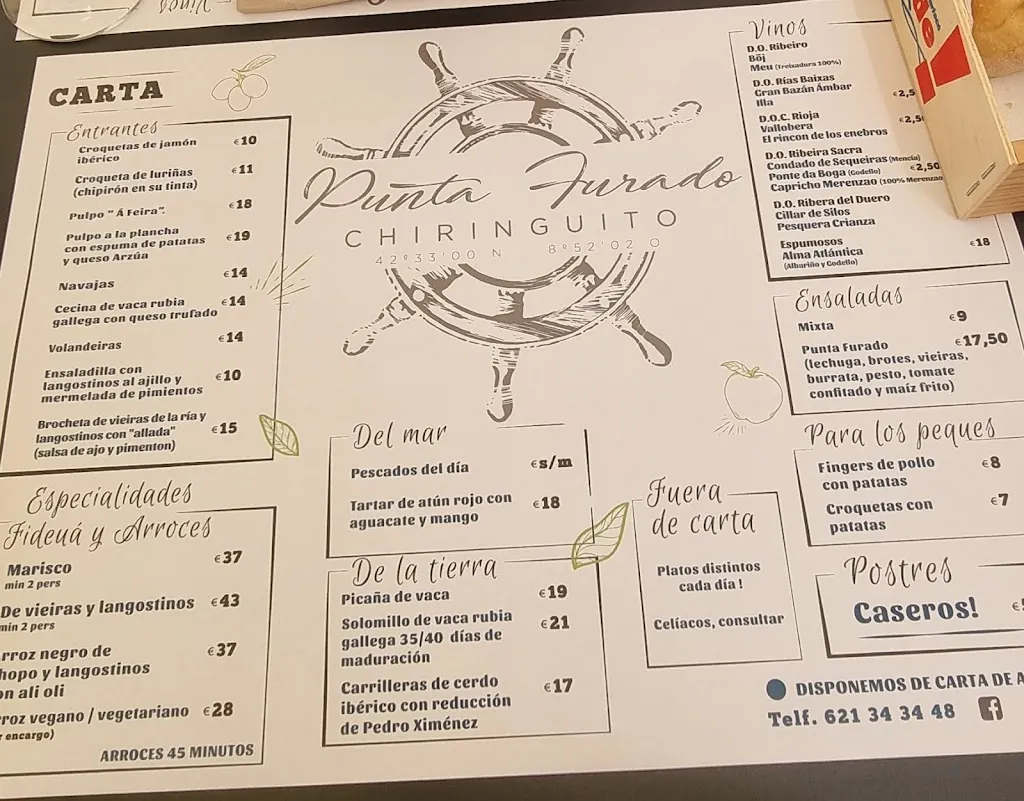 Vinos
CARTA
Entrantes
Croquetas de jamón €10
ibérico
Croqueta de luriñas €11
(chipirón en su tinta)
Pulpo " Á Feira". €18
Pulpo a la plancha
con espuma de patatas €19
y queso Arzúa
Navajas €14
Cecina de vaca rubia €14
gallega con queso trufado
Volandeiras €14
Ensaladilla con
langostinos al ajillo y €10
mermelada de pimientos
Brocheta de vieiras de la ría y
langostinos con "allada" €15
(salsa de ajo y pimenton)
Especialidades
Fideuá y Arroces
Marisco €37
min 2 pers
De vieiras y langostinos €43
min 2 pers
rroz negro de €37
hopo y langostinos
on ali oli
roz vegano / vegetariano €28
r encargo)
ARROCES 45 MINUTOS
Punta Furado
CHIRINGUITO
42º33'00 N 8º52'02 O
Del mar
Pescados del día €s/m
Tartar de atún rojo con €18
aguacate y mango
De la tierra
Picaña de vaca €19
Solomillo de vaca rubia €21
gallega 35/40 días de
maduración
Carrilleras de cerdo €17
ibérico con reducción
de Pedro Ximénez
Fuera
de carta
Platos distintos
cada día !
Celíacos, consultar
Vinos
D.O. Ribeiro
Böj
Meu (Treixadura 100%)
D.O. Rías Baixas
Gran Bazán Ámbar €2,5
Illa
D.O.C. Rioja €2,5
Vallobera
El rincon de los enebros
D.O. Ribeira Sacra
Condado de Sequeiras (Mencía)
Ponte da Boga (Godello) €2,50
Capricho Merenzao (100% Merenzao
D.O. Ribera del Duero
Cillar de Silos
Pesquera Crianza
Espumosos €18
Alma Atlántica
(Albariño y Godello)
Ensaladas
Mixta €9
Punta Furado €17,50
(lechuga, brotes, vieiras,
burrata, pesto, tomate
confitado y maíz frito)
Para los peques
Fingers de pollo €8
con patatas
Croquetas con €7
patatas
Postres
Caseros! €
DISPONEMOS DE CARTA DE A
Telf. 621 34 34 48